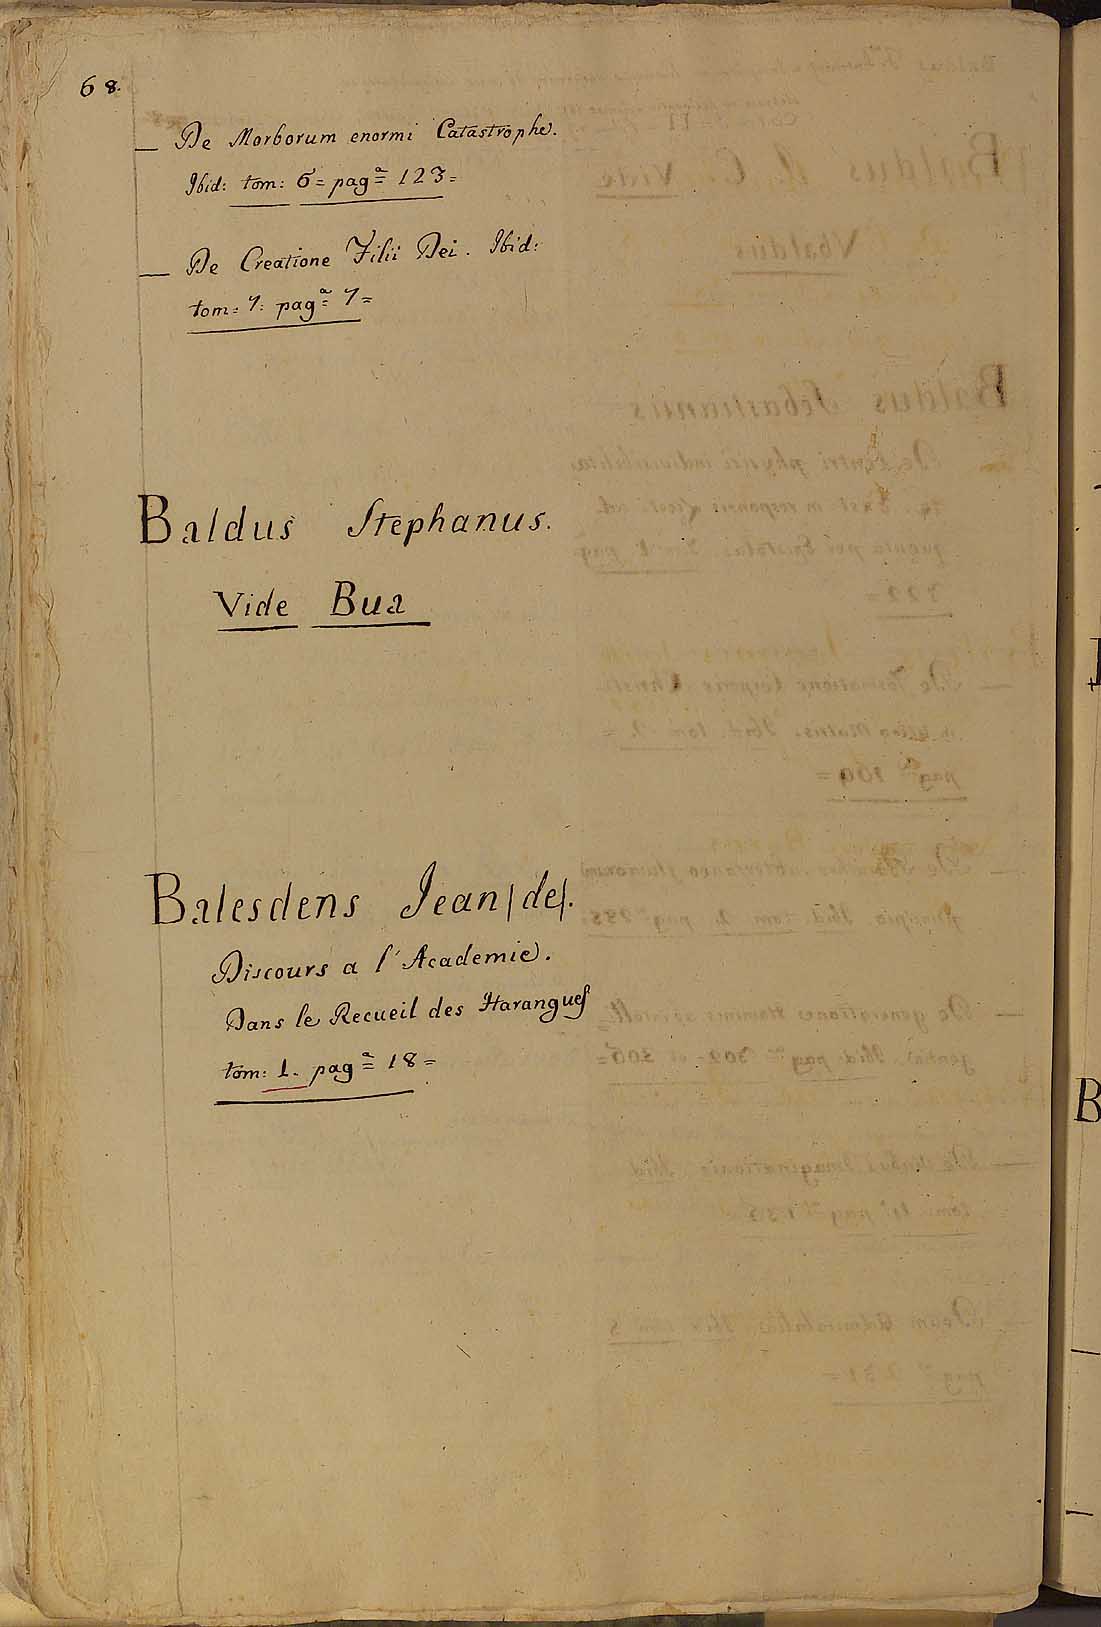 68.
— De Morborum enormi Catastrophe.
Ibid: tom: 6= pagª= 123=
— De Creatione Filii Dei. Ibid:
tom= 7: pagª= 7=
Baldus Stephanus.
Vide Bua
Balesdens Jean /de/.
Discours a l'Academie.
Dans le Recueil des Harangues
tom: 1. pagª= 18=